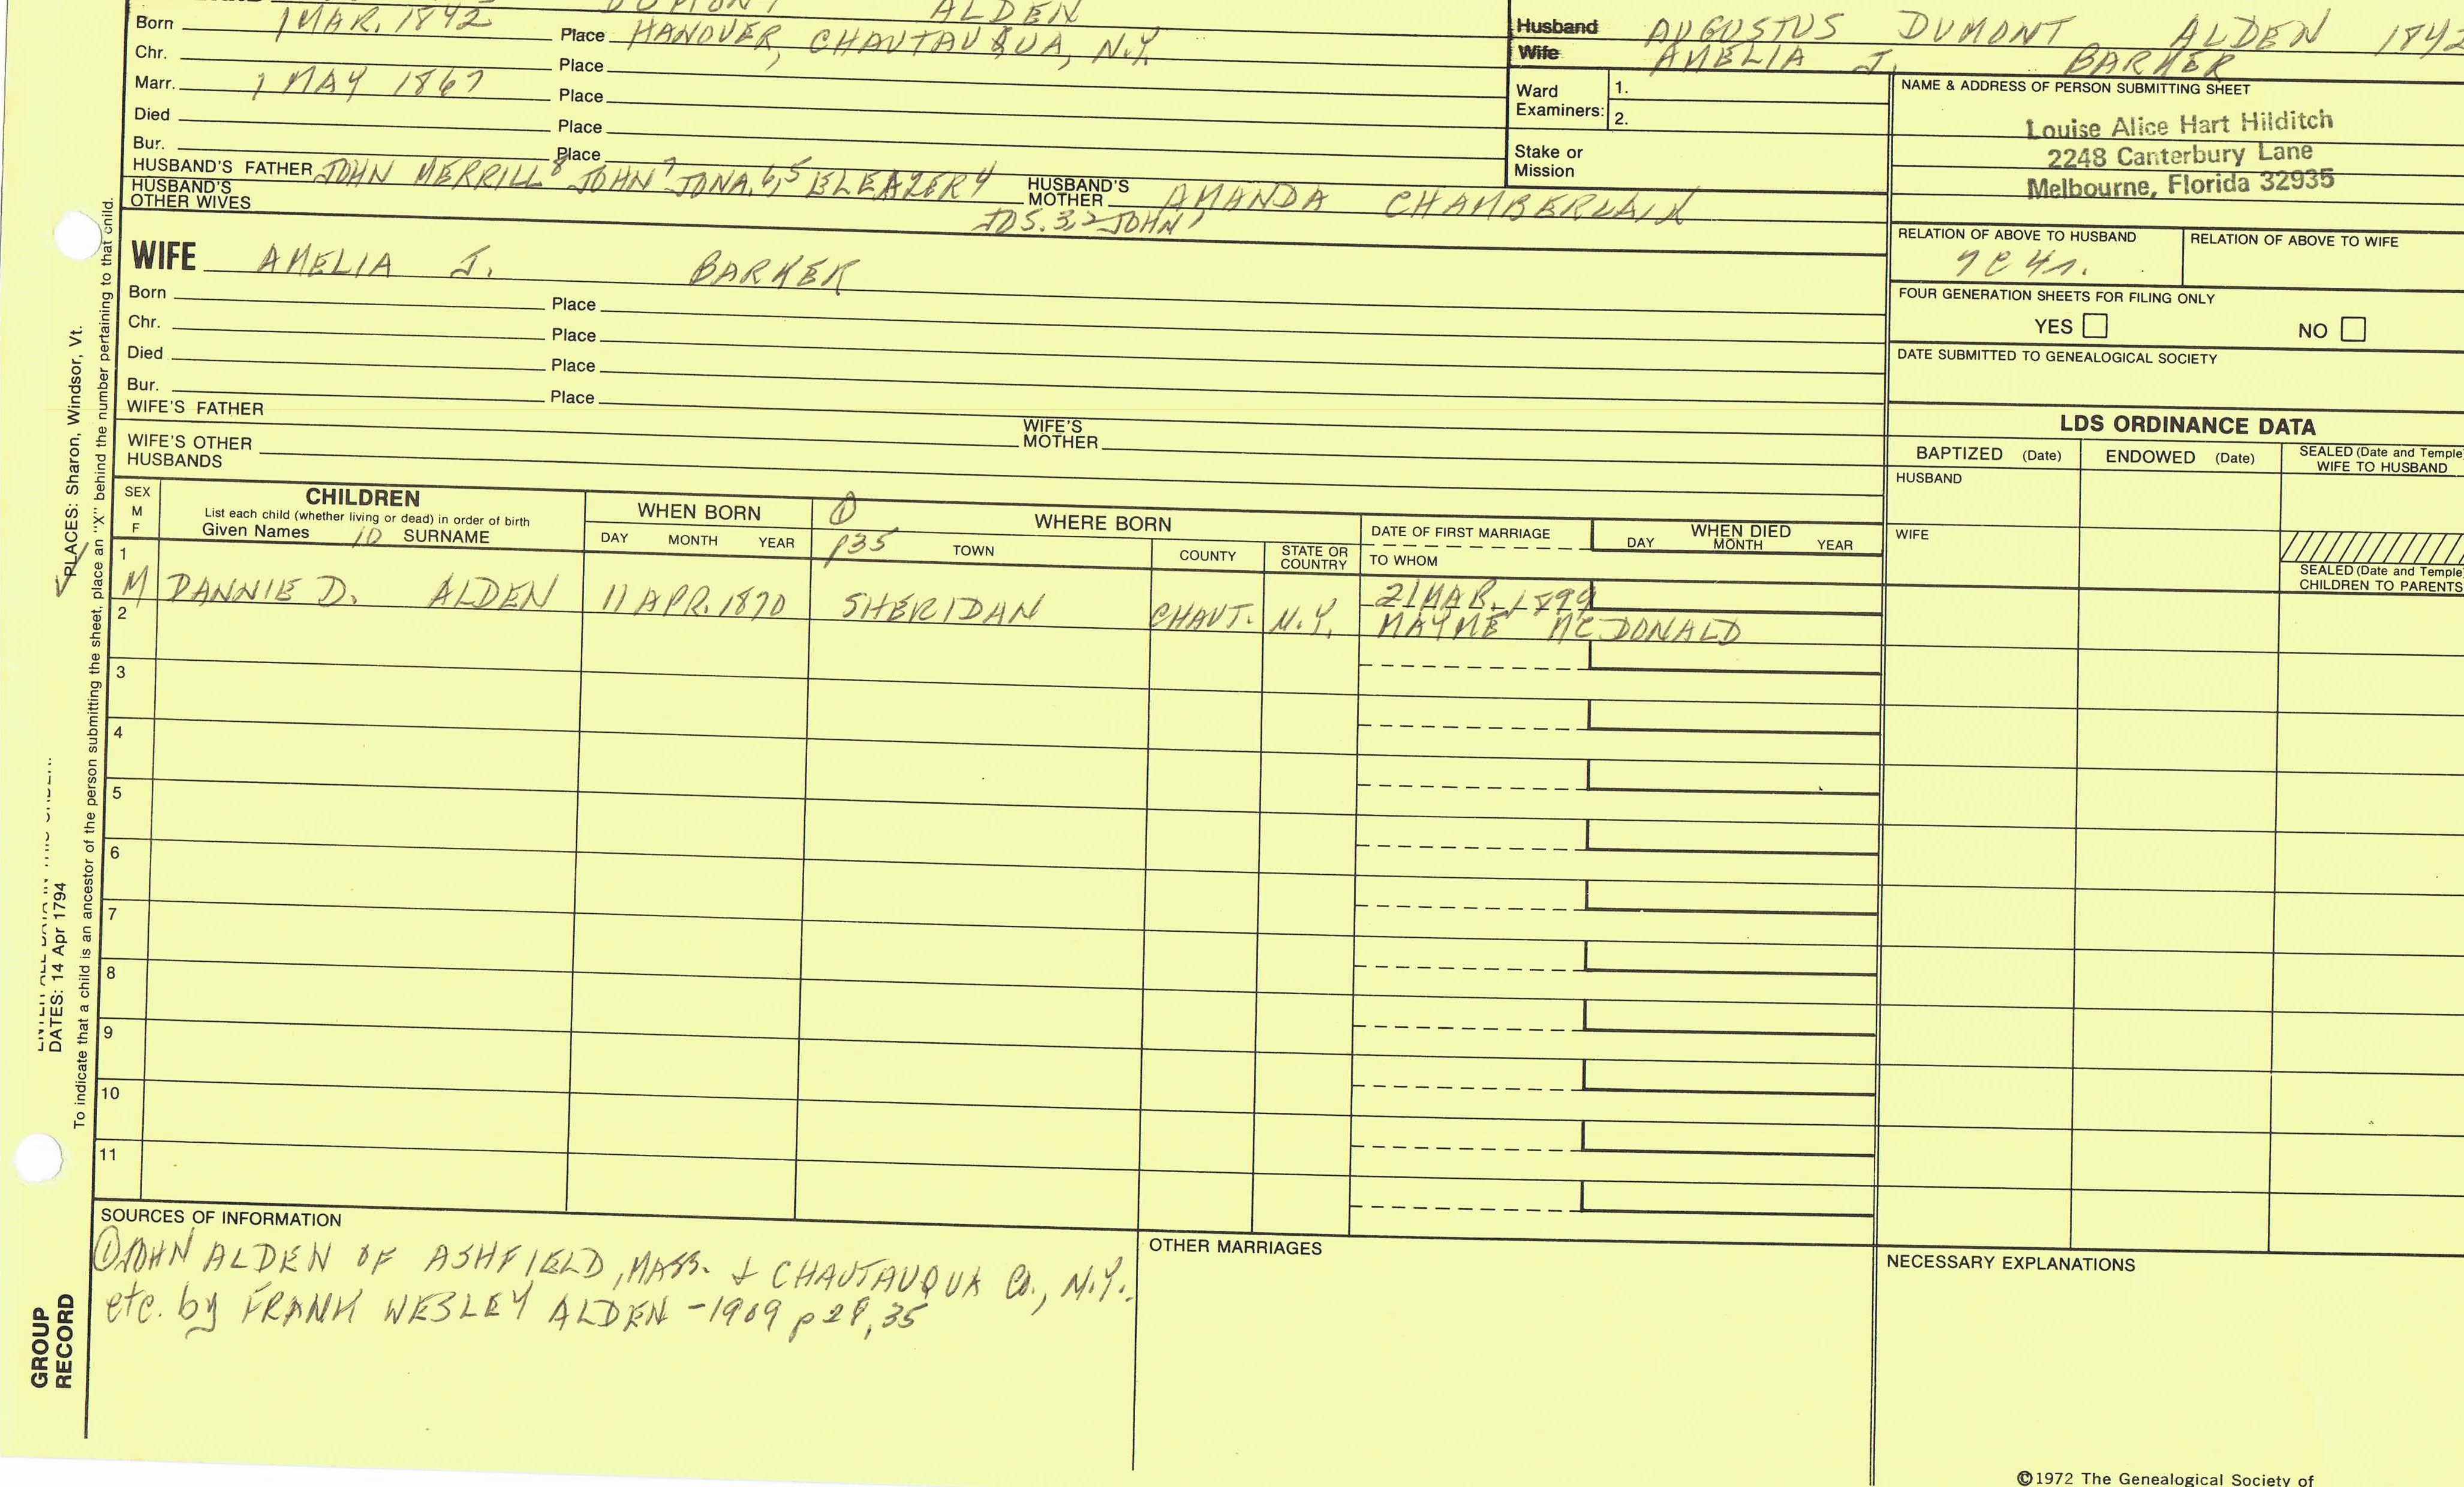 DUMONT ALDEN
Born 1 MAR. 1842 Place HANOVER, CHAUTAUQUA, N.Y.
Chr. Place
Marr. 1 MAY 1867 Place
Died Place
Bur. Place
HUSBAND'S FATHER JOHN MERRILL 8 JOHN 7 JONA. 6,5 ELEAZER 4 HUSBAND'S MOTHER AMANDA CHAMBERLAIN
HUSBAND'S OTHER WIVES JOS. 3,2 JOHN 1
Husband AUGUSTUS DUMONT ALDEN 1842
Wife AMELIA J. BARKER
Ward Examiners: 1.
2.
Stake or Mission
NAME & ADDRESS OF PERSON SUBMITTING SHEET
Louise Alice Hart Hilditch
2248 Canterbury Lane
Melbourne, Florida 32935
RELATION OF ABOVE TO HUSBAND RELATION OF ABOVE TO WIFE
FOUR GENERATION SHEETS FOR FILING ONLY
YES NO
DATE SUBMITTED TO GENEALOGICAL SOCIETY
WIFE AMELIA J. BARKER
Born Place
Chr. Place
Died Place
Bur. Place
WIFE'S FATHER WIFE'S MOTHER
WIFE'S OTHER HUSBANDS
LDS ORDINANCE DATA
BAPTIZED (Date) ENDOWED (Date) SEALED (Date and Temple) WIFE TO HUSBAND
HUSBAND
WIFE
SEALED (Date and Temple)
CHILDREN TO PARENTS
SEX M F
CHILDREN
List each child (whether living or dead) in order of birth
Given Names 10 SURNAME
WHEN BORN
DAY MONTH YEAR
① P35
WHERE BORN
TOWN COUNTY STATE OR COUNTRY
DATE OF FIRST MARRIAGE
TO WHOM
WHEN DIED
DAY MONTH YEAR
1
M DANNIE D. ALDEN 11 APR. 1870 SHERIDAN CHAUT. N.Y. 21 MAR. 1899
MAYME McDONALD
2
3
4
5
6
7
8
9
10
11
SOURCES OF INFORMATION
① JOHN ALDEN OF ASHFIELD, MASS. & CHAUTAUQUA Co., N.Y.
etc. by FRANK WESLEY ALDEN - 1909 p 28, 35
OTHER MARRIAGES
NECESSARY EXPLANATIONS
©1972 The Genealogical Society of
PLACES: Sharon, Windsor, Vt.
To indicate that a child is an ancestor of the person submitting the sheet, place an "X" behind the number pertaining to that child.
DATES: 14 Apr 1794
GROUP
RECORD